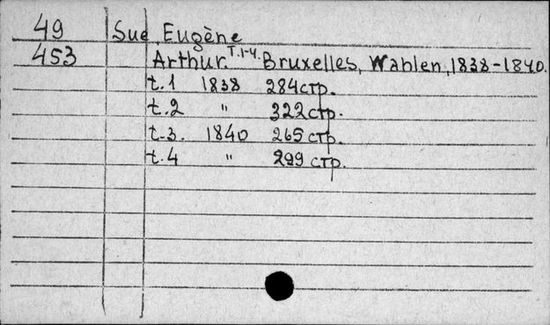 49 Sue Eugène
453 Arthur. T.1-4. Bruxelles, Wahlen, 1838-1840.
t.1 1838 284стр.
t.2 " 322стр.
t.3. 1840 265стр.
t.4 " 299стр.